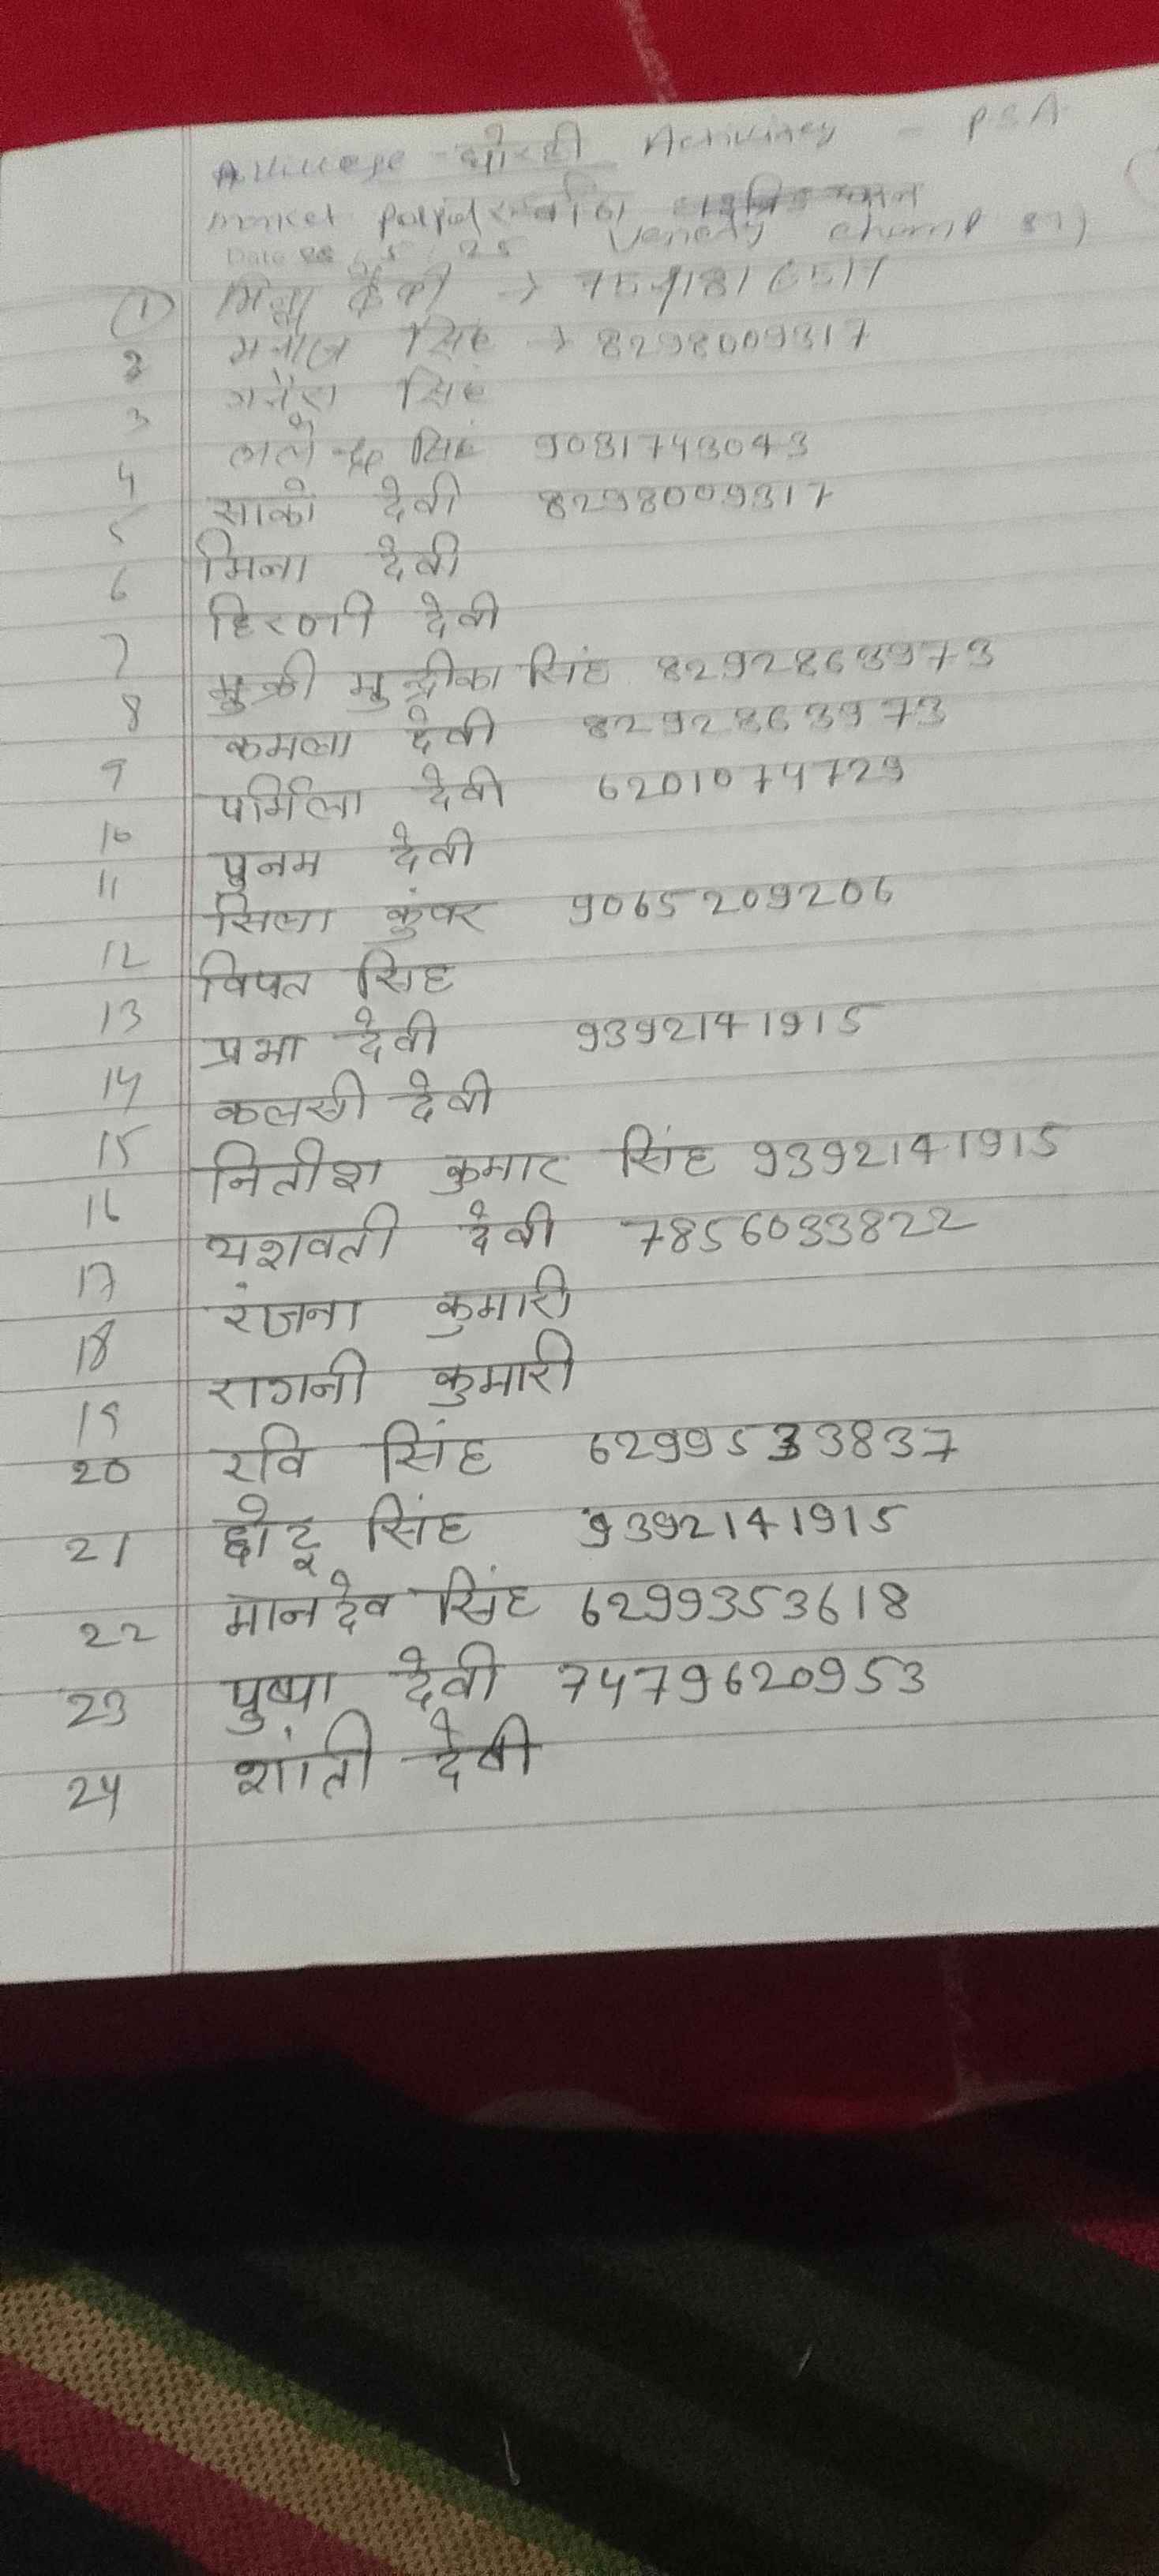 Village - घोरही Activiney - PSA
market
Date 5 25 Venedy
1 देवी → 7541816517
2 मनोज सिंह → 8298009317
3 गनेश सिंह
4 सिंह 9031743043
5 साको देवी 8298009317
6 मिना देवी
7 हिरणी देवी
8 मुन्द्रीका सिंह 8292863973
9 कमला देवी 8292863973
10 पर्मिला देवी 6201074729
11 पुनम देवी
12 सिला कुंवर 9065209206
13 विपत सिंह
14 प्रभा देवी 9392141915
15 कलसी देवी
16 नितीश कुमार सिंह 9392141915
17 यशवती देवी 7856033822
18 रंजना कुमारी
19 रागनी कुमारी
20 रवि सिंह 6299533837
21 छोटू सिंह 9392141915
22 मानदेव सिंह 6299353618
23 पुष्पा देवी 7479620953
24 शांती देवी